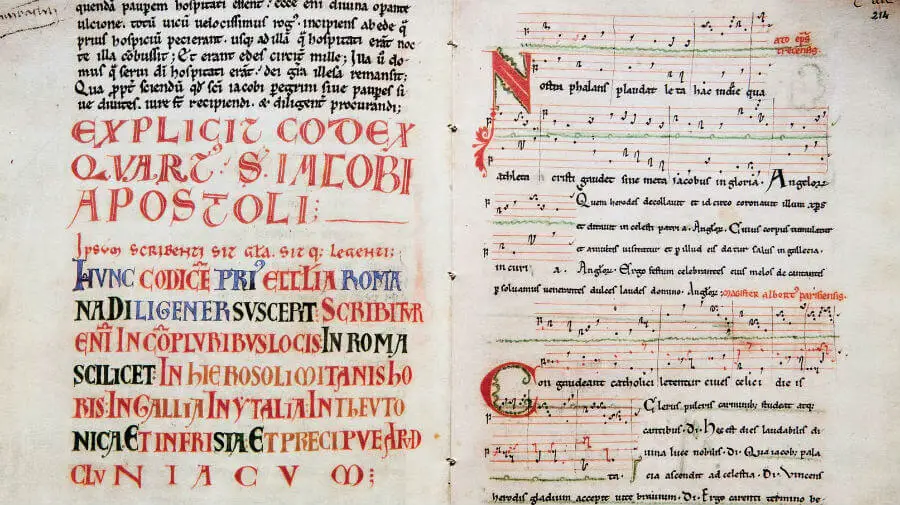 quendā paupem hospitati essent. esse eni divina operante
ulcione. totū uicū uelocissimus rog᷒. incipiens ab ede q̄
prius hospiciū pecierant. usq; ad illā q̄ hospitati erāt noc
te illa cōbussit; Et erant edes circit̄ mille; Illa ū do
mus q̄ serui dī hospitati erāt. dei gīa illesa remansit;
Qua ppt̄ sciendū qđ sc̄i iacobi pegrini siue paupes si
ue diuites. iure sr̄ recipiendi. & diligent̄ procurandi;
EXPLICIT CODEX
QVART᷒. S. IACOBI
APOSTOLI;
Ipsum scribenti sit gła. sit q; legenti;
HVNC CODICĒ PRI᷒ ECCLĪA ROMA
NA DILIGENER SUSCEPT: SCRIBITVR
ENĪ IN CŌPLURIBVS LOCIS: IN ROMA
SCILICET: IN HIEROSOLIMITANIS HO
RIS: IN GALLIA IN YTALIA: IN THEVTO
NICA ET IN FRISIA ET PRECIPVE APUD
CLVNIACVM;
214
ato ep̄s
trecensis
Nostra phalans plaudat leta hac indie qua
athleta cristi gaudet sine meta jacobus in gloria. Angelor᷒
Quem herodes decollauit et id circo coronauit illum xp̄s
et ditauit in celesti patria. Angl᷒. Cuius corpus tumulatur
et a multis uisitatur et p illud eis datur salus in gallecia.
in curia. Angl᷒. Ergo festum celebrantes eius melos decantantes
psoluamus uenerantes dulces laudes domino. Angl᷒. magister albert᷒ parisiensis.
Congaudeant catholici letentur ciues celici die ista.
Clerus pulcris carminib; studeat atq;
cantibus. Di. Hec est dies laudabilis di
uina luce nobilis. Di. Qua iacob; pala
cia ascendit ad celestia. Di. Vincens
herodis gladium accepit uite brauium. Di. Ergo carenti termino be